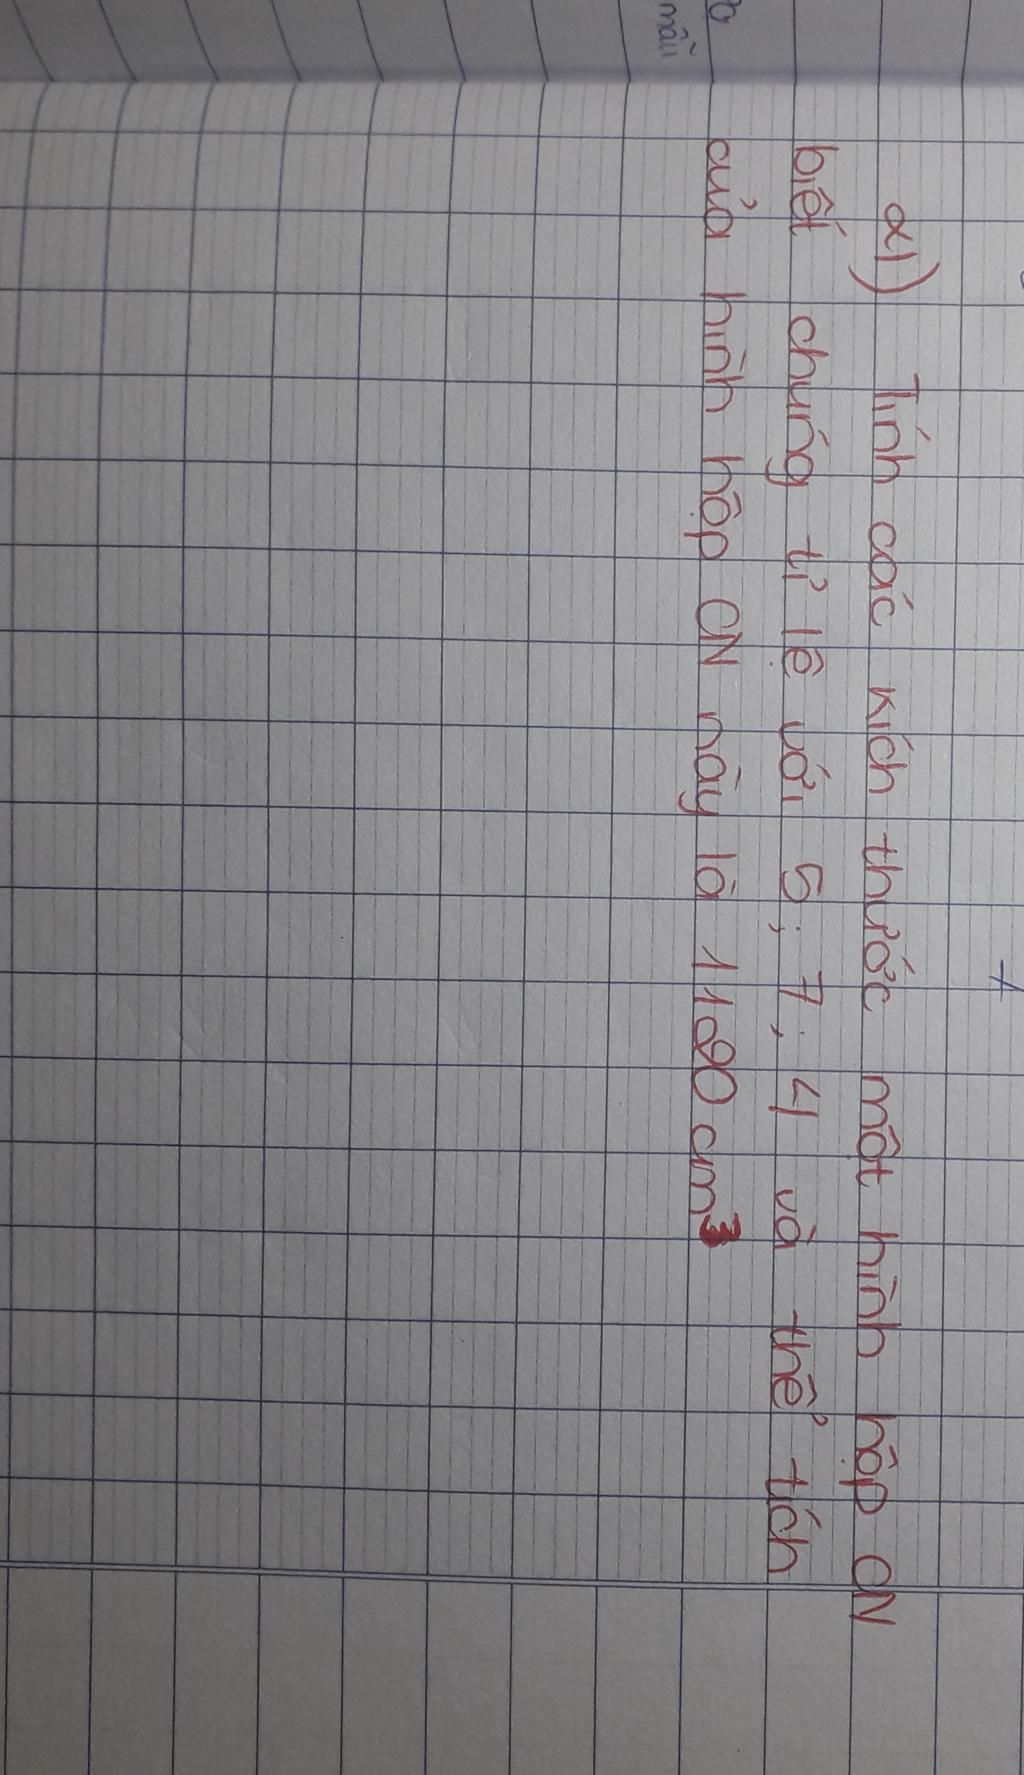 α1) Tính các kích thước một hình hộp CN
biết chúng tỉ lệ với 5; 7; 4 và thể tích
của hình hộp CN này là 1190 cm³
mẫu